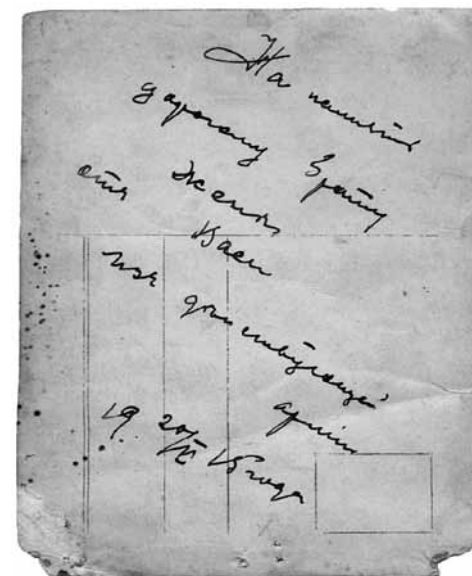 На память
дорогому брату
отъ Жени
Васи
изъ действующей
армiи
19 20/ 15 года